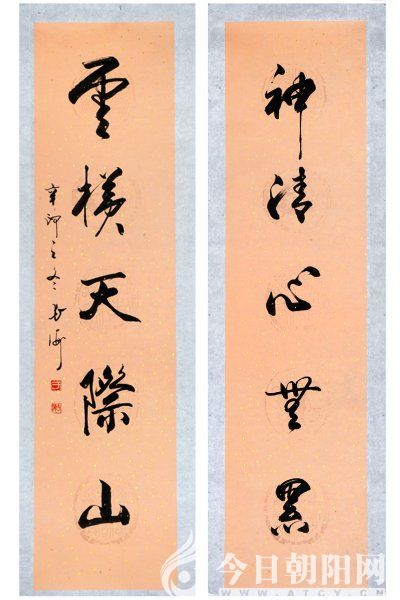 神清心無累
雲横天際山
辛卯之冬
今日朝阳网
ATCY.CN